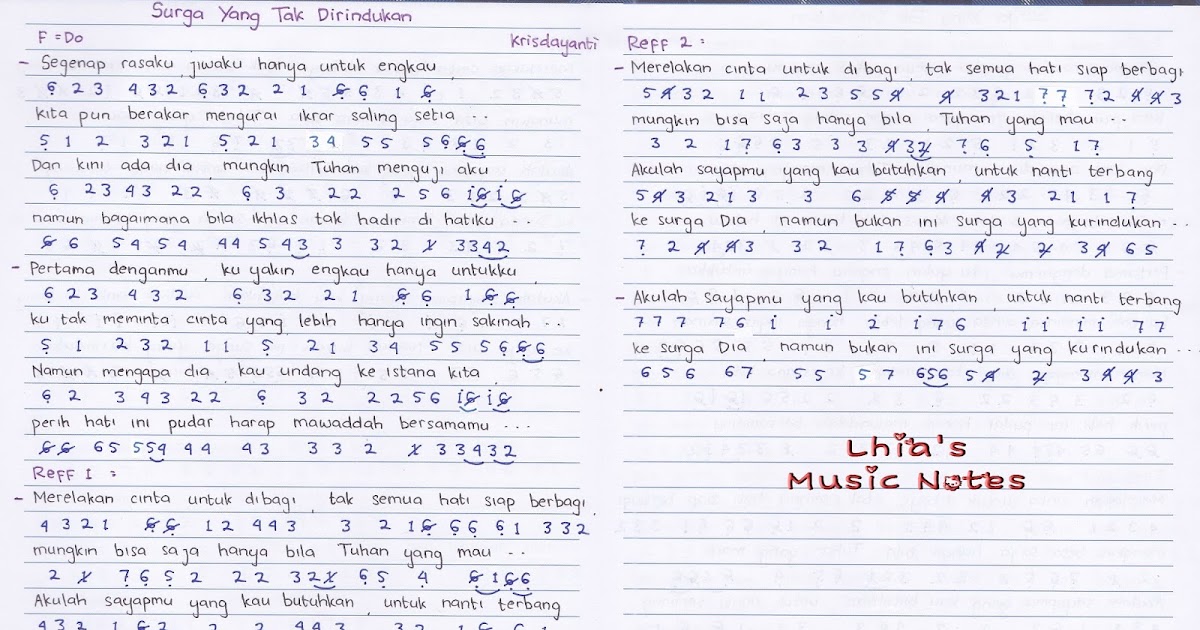 Surga Yang Tak Dirindukan
F = Do
Krisdayanti
- Segenap rasaku, jiwaku hanya untuk engkau
6̣ 2 3 4 3 2 6̣ 3 2 2 1 6̸̣ 6̣ 1 6̸̣
kita pun berakar mengurai ikrar saling setia ...
5̣ 1 2 3 2 1 5̣ 2 1 3 4 5 5 5 6̸ 6̸ 6
Dan kini ada dia mungkin Tuhan menguji aku,
6̣ 2 3 4 3 2 2 6̣ 3 2 2 2 5 6 i 6̸ i 6̸
namun bagaimana bila ikhlas tak hadir di hatiku ...
6̸ 6 5 4 5 4 4 4 5 4 3 3 3 2 1̸ 3 3 4 2
- Pertama denganmu, ku yakin engkau hanya untukku
6̣ 2 3 4 3 2 6̣ 3 2 2 1 6̸̣ 6̣ 1 6̸̣ 6̸̣
ku tak meminta cinta yang lebih hanya ingin sakinah ...
5̣ 1 2 3 2 1 1 5̣ 2 1 3 4 5 5 5 6̸ 6̸ 6
Namun mengapa dia, kau undang ke istana kita,
6̣ 2 3 4 3 2 2 6̣ 3 2 2 2 5 6 i 6̸ i 6̸
perih hati ini pudar harap mawaddah bersamamu ...
6̸ 6̸ 6 5 5 5 4 4 4 4 3 3 3 2 1̸ 3 3 4 3 2
Reff 1 :
- Merelakan cinta untuk dibagi, tak semua hati siap berbagi,
4 3 2 1 6̸̣ 6̸̣ 1 2 4 4 3 3 2 1 6̸̣ 6̣ 6̣ 6̣ 1 3 3 2
mungkin bisa saja hanya bila Tuhan yang mau ..
2 1̸ 7̣ 6̣ 5̣ 2 2 2 3 2 1̸ 6̣ 5̣ 4̣ 6̸̣ 1 6̸̣ 6̣
Akulah sayapmu yang kau butuhkan, untuk nanti terbang
4 3 2 1 6̸̣ 2 2 2 4 4 3 3 2 1 6̣ 6̣ 6̣
Reff 2 :
- Merelakan cinta untuk di bagi, tak semua hati siap berbagi
5 4̸ 3 2 1 1 2 3 5 5 4̸ 4̸ 3 2 1 7̣ 7̣ 7̣ 2 4̸ 4̸ 3
mungkin bisa saja hanya bila, Tuhan yang mau ..
3 2 1 7̣ 6̣ 3 3 3 4̸ 3 2̸ 7̣ 6̣ 5̣ 1 7̣
Akulah sayapmu yang kau butuhkan untuk nanti terbang
5 4̸ 3 2 1 3 3 6 5̸ 5̸ 4̸ 4̸ 3 2 1 1 7̣
ke surga Dia, namun bukan ini surga yang kurindukan ..
7̣ 2 4̸ 4̸ 3 3 2 1 7̣ 6̣ 3 4̸ 2̸ 2̸ 3 4̸ 6 5
- Akulah sayapmu yang kau butuhkan, untuk nanti terbang
7 7 7 7 6 i i 2̇ i 7 6 i i i i 7 7
ke surga Dia, namun bukan ini surga yang kurindukan ...
6 5 6 6 7 5 5 5 7 6 5 6 5 4̸ 2̸ 3 4̸ 4̸ 3
Lhia's
Music Notes